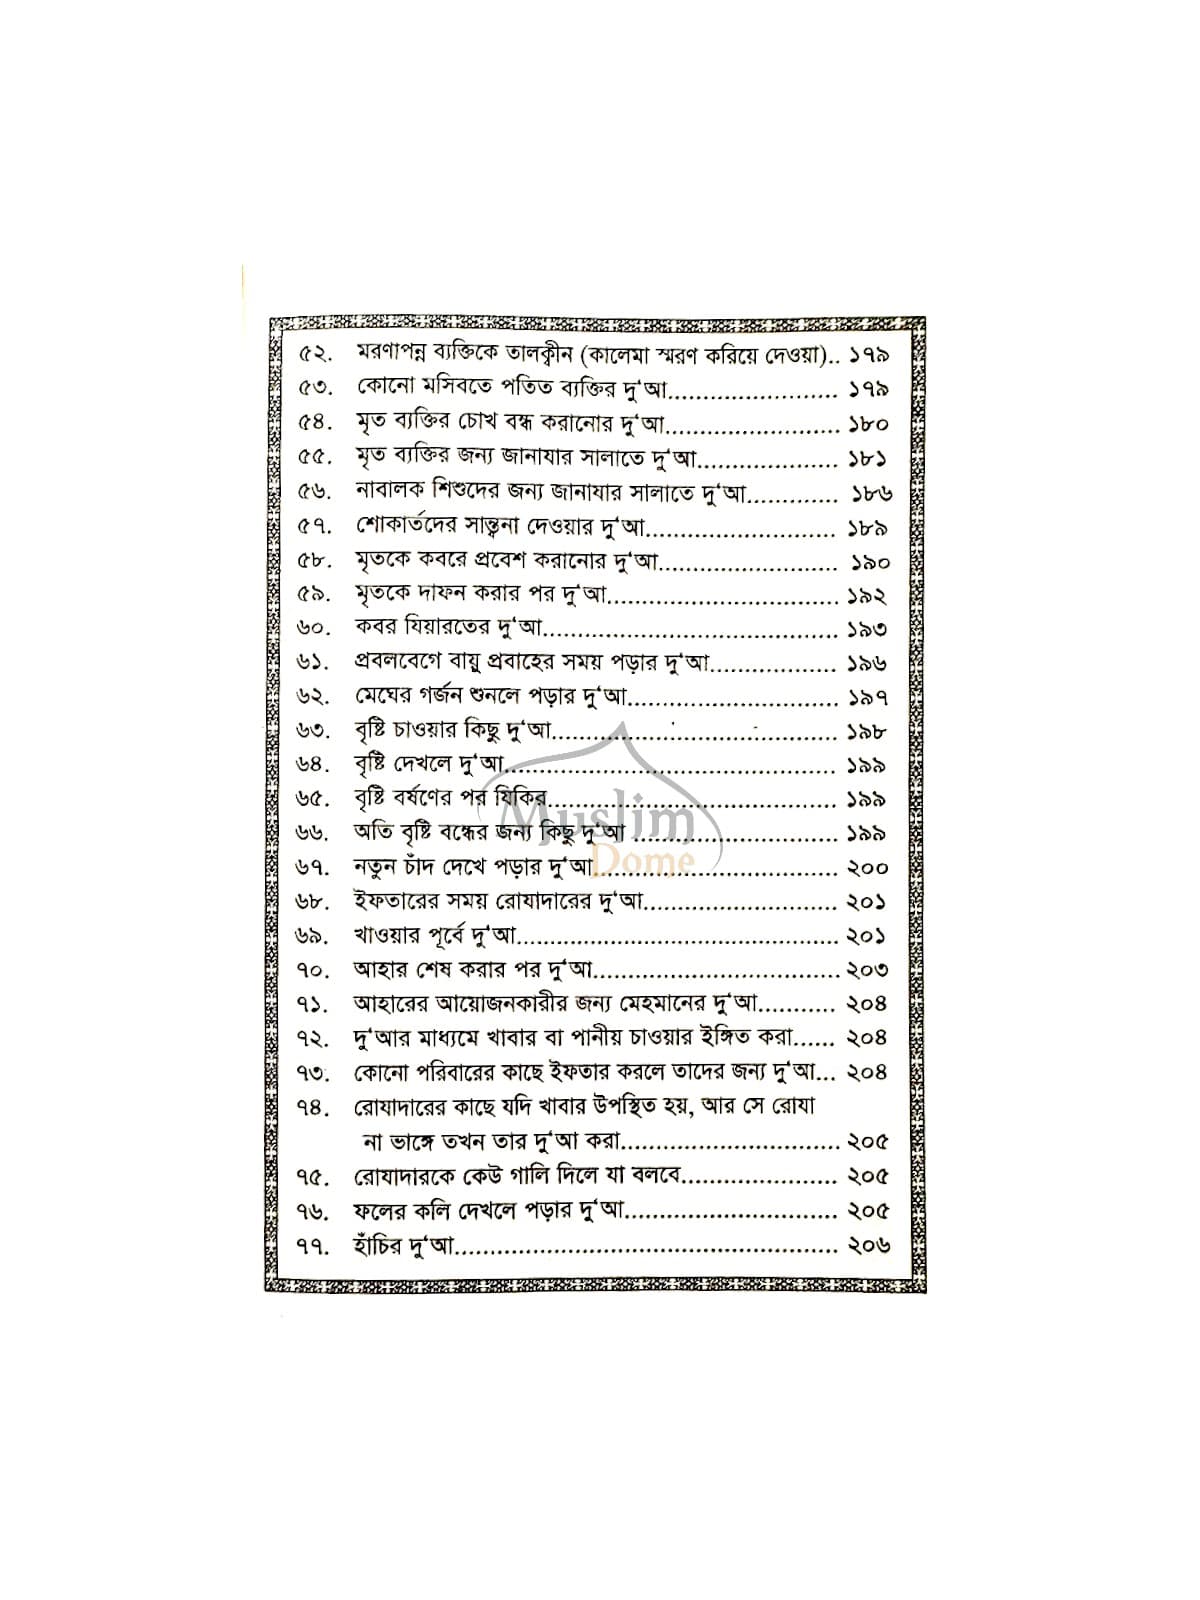 ৫২. মরণাপন্ন ব্যক্তিকে তালক্বীন (কালেমা স্মরণ করিয়ে দেওয়া).. ১৭৯
৫৩. কোনো মসিবতে পতিত ব্যক্তির দু‘আ........................ ১৭৯
৫৪. মৃত ব্যক্তির চোখ বন্ধ করানোর দু‘আ......................... ১৮০
৫৫. মৃত ব্যক্তির জন্য জানাযার সালাতে দু‘আ.................... ১৮১
৫৬. নাবালক শিশুদের জন্য জানাযার সালাতে দু‘আ............. ১৮৬
৫৭. শোকার্তদের সান্ত্বনা দেওয়ার দু‘আ........................... ১৮৯
৫৮. মৃতকে কবরে প্রবেশ করানোর দু‘আ.......................... ১৯০
৫৯. মৃতকে দাফন করার পর দু‘আ................................. ১৯২
৬০. কবর যিয়ারতের দু‘আ.......................................... ১৯৩
৬১. প্রবলবেগে বায়ু প্রবাহের সময় পড়ার দু‘আ.................. ১৯৬
৬২. মেঘের গর্জন শুনলে পড়ার দু‘আ.............................. ১৯৭
৬৩. বৃষ্টি চাওয়ার কিছু দু‘আ......................................... ১৯৮
৬৪. বৃষ্টি দেখলে দু‘আ............................................... ১৯৯
৬৫. বৃষ্টি বর্ষণের পর যিকির......................................... ১৯৯
৬৬. অতি বৃষ্টি বন্ধের জন্য কিছু দু‘আ .............................. ১৯৯
৬৭. নতুন চাঁদ দেখে পড়ার দু‘আ................................... ২০০
৬৮. ইফতারের সময় রোযাদারের দু‘আ............................ ২০১
৬৯. খাওয়ার পূর্বে দু‘আ.............................................. ২০১
৭০. আহার শেষ করার পর দু‘আ................................... ২০৩
৭১. আহারের আয়োজনকারীর জন্য মেহমানের দু‘আ........... ২০৪
৭২. দু‘আর মাধ্যমে খাবার বা পানীয় চাওয়ার ইঙ্গিত করা...... ২০৪
৭৩. কোনো পরিবারের কাছে ইফতার করলে তাদের জন্য দু‘আ... ২০৪
৭৪. রোযাদারের কাছে যদি খাবার উপস্থিত হয়, আর সে রোযা
না ভাঙ্গে তখন তার দু‘আ করা............................... ২০৫
৭৫. রোযাদারকে কেউ গালি দিলে যা বলবে...................... ২০৫
৭৬. ফলের কলি দেখলে পড়ার দু‘আ.............................. ২০৫
৭৭. হাঁচির দু‘আ...................................................... ২০৬
Muslim
Dome